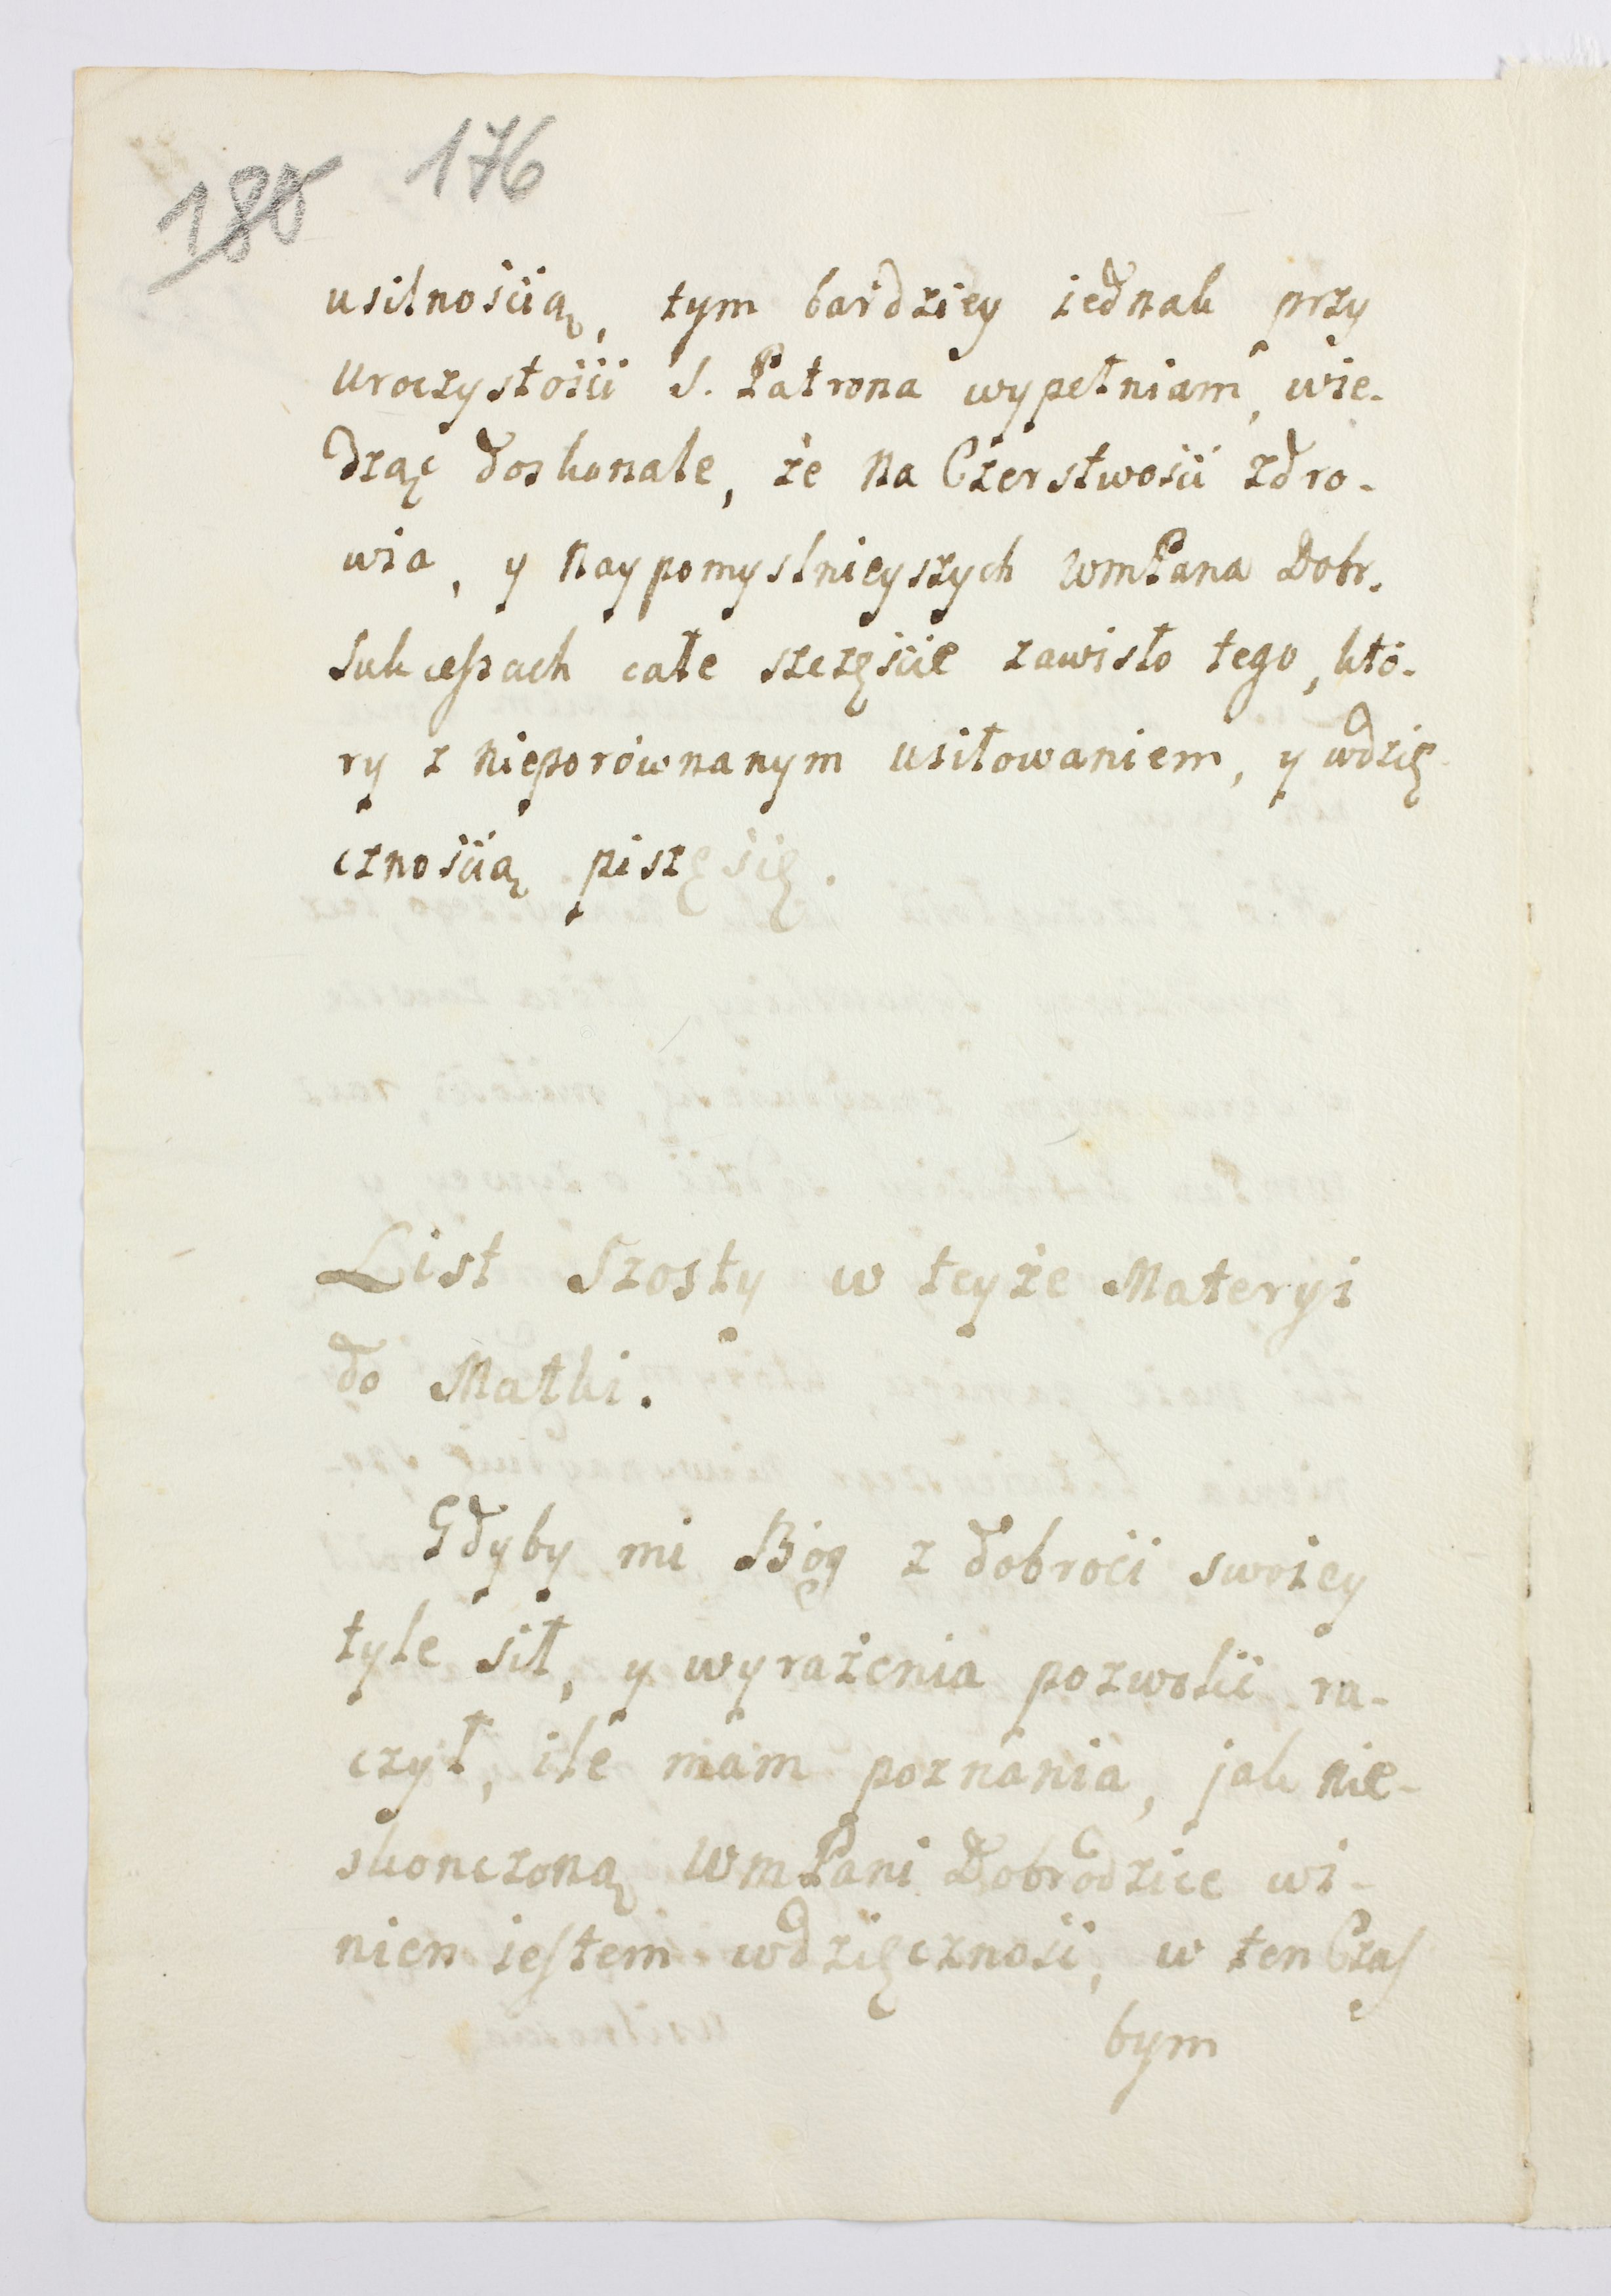 180 176
usilnością, tym bardziey iednak przy
uroczystości S. Patrona wypełniam, wie-
dząc doskonale, że na Czerstwości zdro-
wia, y naypomyslnieyszych WmPana Dobr.
sukcessach całe szczęście zawisło tego, któ-
ry z nieporównanym usiłowaniem, y wdzię
cznością piszę się.
List Szosty w teyże Materyi
do Matki.
Gdyby mi Bóg z dobroci swoiey
tyle sił, y wyrażenia pozwolić ra-
czył, ile mam poznania, jak nie-
skonczoną WmPani Dobrodzice wi-
nien iestem wdzięcznosci, w ten Czas
bym